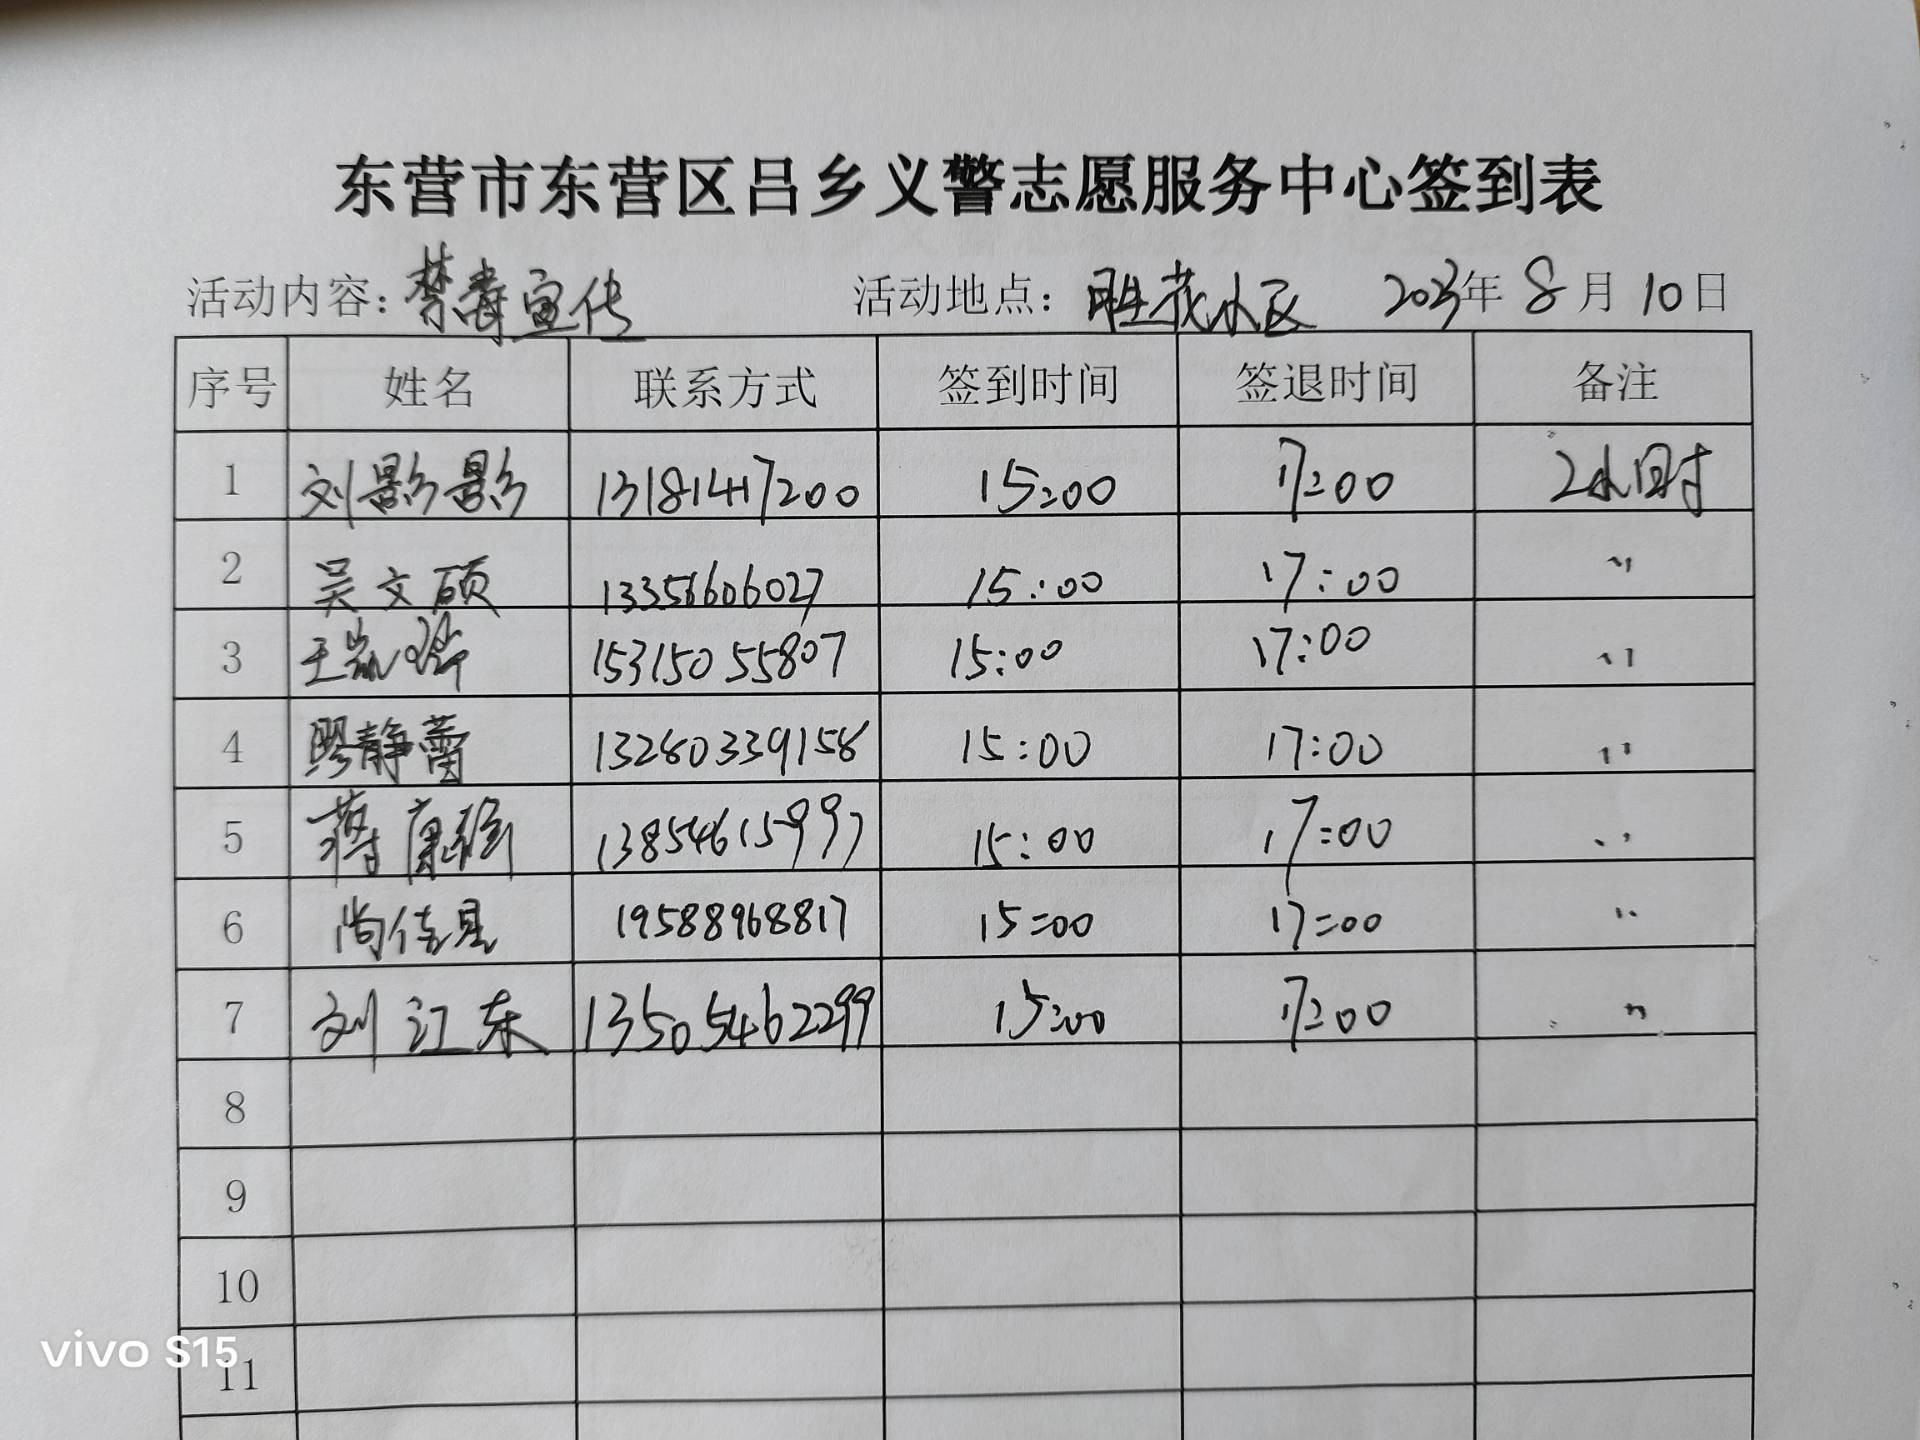 东营市东营区吕乡义警志愿服务中心签到表
活动内容：禁毒宣传 活动地点：胜花小区 2023年8月10日
序号 姓名 联系方式 签到时间 签退时间 备注
1 刘影影 13181417200 15:00 17:00 2小时
2 吴文硕 13356606027 15:00 17:00 〃
3 15315055807 15:00 17:00 〃
4 缪静蕾 13280339158 15:00 17:00 〃
5 蒋 13854615997 15:00 17:00 〃
6 尚佳昱 19588968817 15:00 17:00 〃
7 刘江东 13505462299 15:00 17:00 〃
8
9
10
11
vivo S15